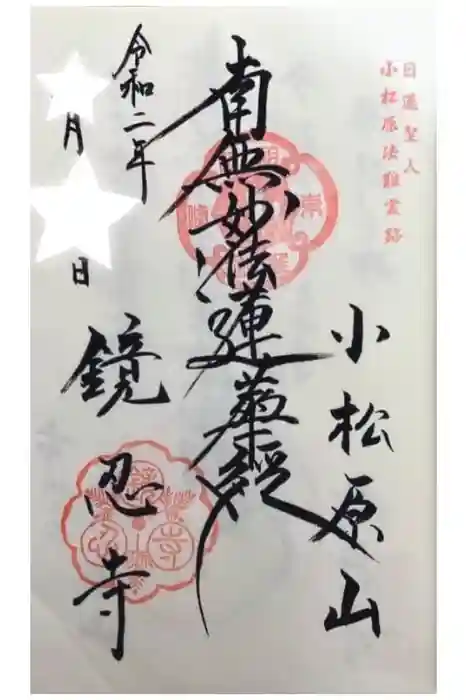 日蓮聖人
小松原法難霊跡
小松原山
南無妙法蓮華経
令和二年
月
日
鏡忍寺